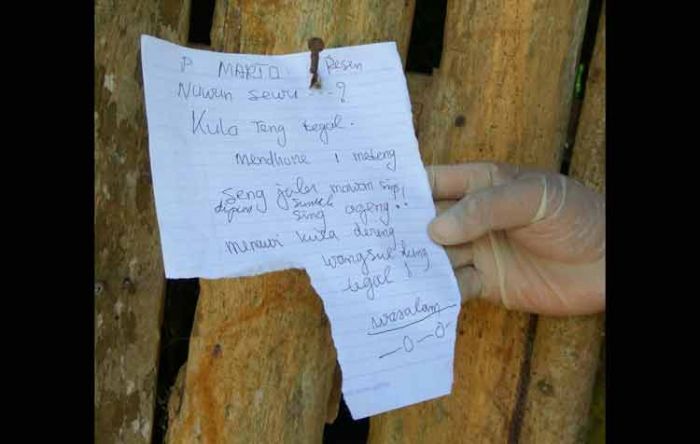 P. MARTO Pesen
Nuwun sewu ---?
Kula Teng tegal.
Mendhone 1 mateng
Seng jaler mawon sing
dipun sunteh
Sing ageng..!
menawi kula dereng
wangsul dang
tegal !
wasalam